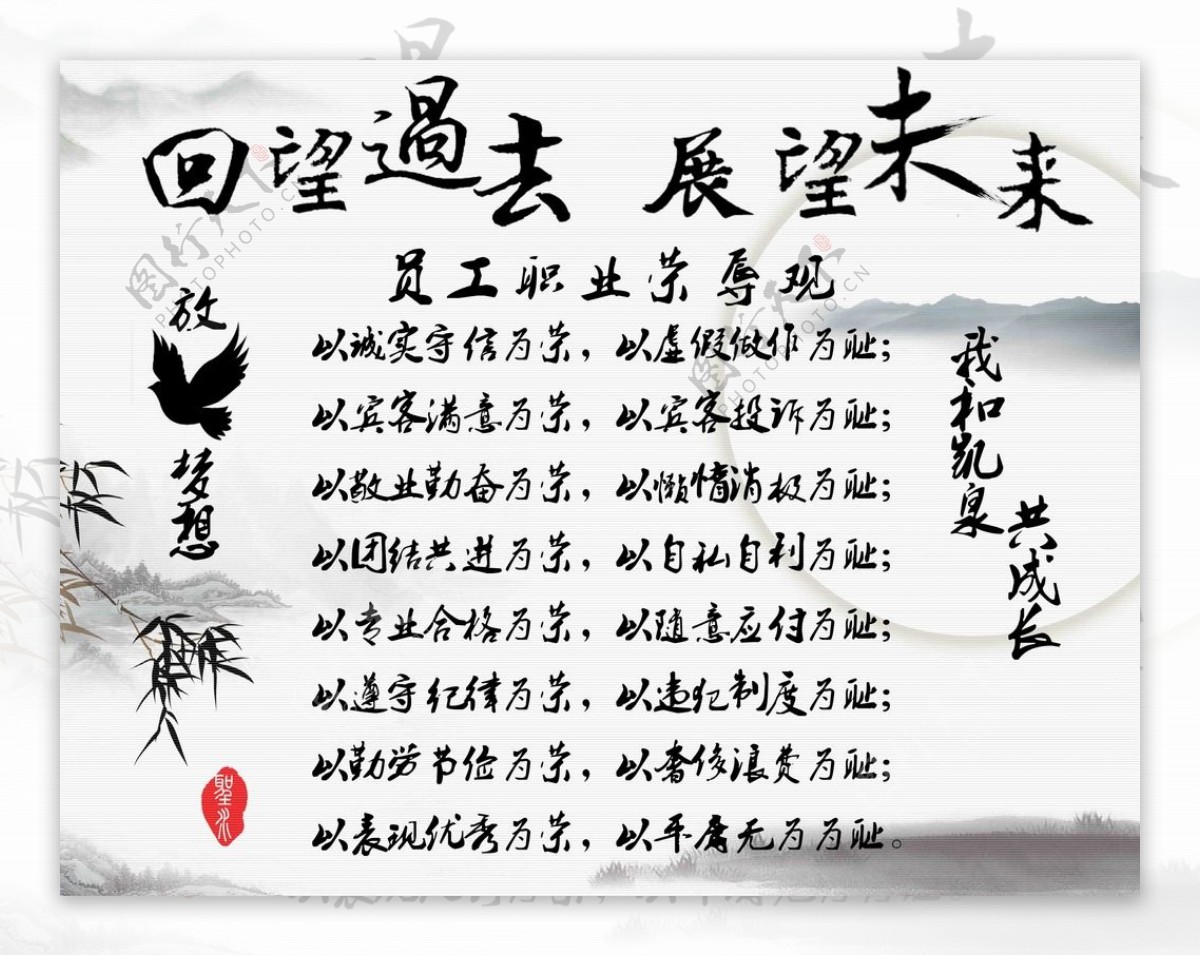 回望過去 展望未来
员工职业荣辱观
放
梦想
以诚实守信为荣，以虚假做作为耻；
以宾客满意为荣，以宾客投诉为耻；
以敬业勤奋为荣，以懒惰消极为耻；
以团结共进为荣，以自私自利为耻；
以专业合格为荣，以随意应付为耻；
以遵守纪律为荣，以违犯制度为耻；
以勤劳节俭为荣，以奢侈浪费为耻；
以表现优秀为荣，以平庸无为为耻。
我和凯泉
共成长
图行天下
PHOTOPHOTO.CN
图行天下
PHOTOPHOTO.CN